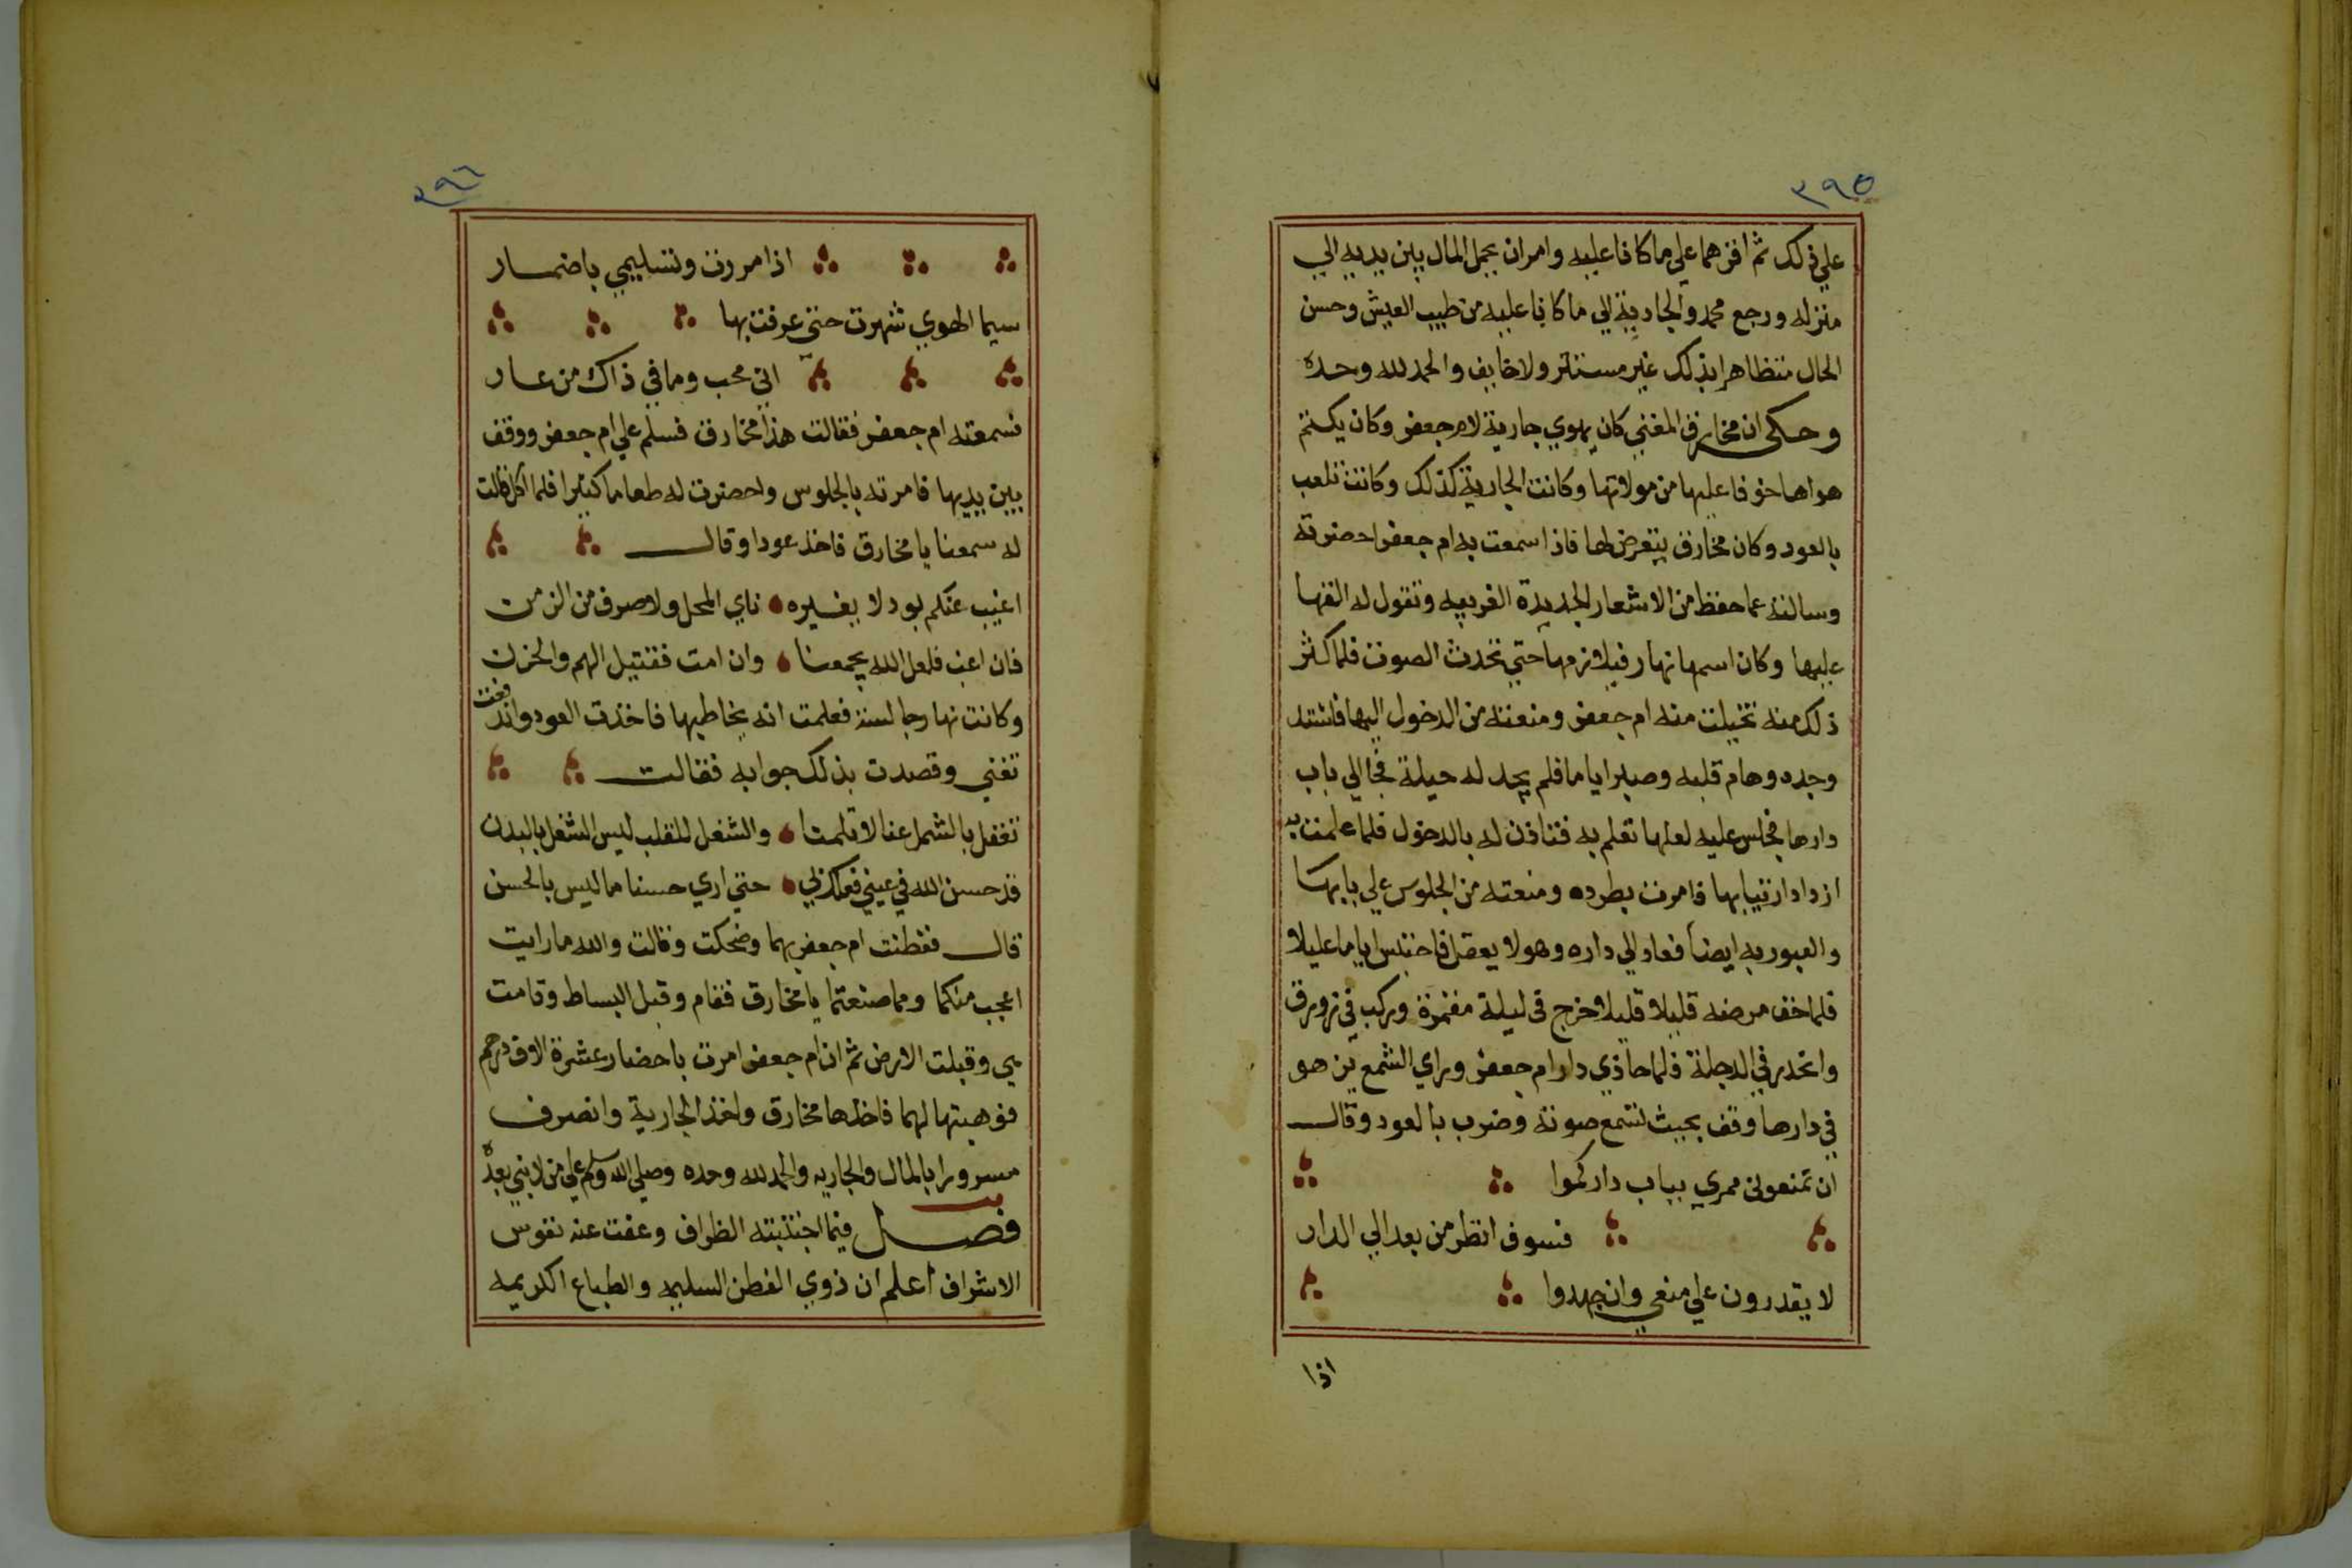 ٣٩٥
علي ذلك ثم اقرهما علي ما كانا عليه وامران يحمل المال بين يديه الي
منزله ورجع محمد والجارية الي ما كانا عليه من طيب العيش وحسن
الحال متظاهرا بذلك غير مستتر ولا خايف والحمد لله وحده
وحكى ان مخارق المغني كان يهوي جارية لام جعفر وكان يكتم
هواها خوفا عليها من مولاتها وكانت الجارية كذلك وكانت تلعب
بالعود وكان مخارق يتعرض لها فاذا سمعت به ام جعفر احضرته
وسالته عما حفظ من الاشعار الجديدة الغريبه وتقول له القها
عليها وكان اسمها نهار فيلازمها حتي تحدث الصوت فلما كثر
ذلك منه تخيلت منه ام جعفر ومنعته من الدخول اليها فاشتد
وجده وهام قلبه وصبر اياما فلم يجد له حيلة فجا الي باب
دارها فجلس عليه لعلها تعلم به فتاذن له بالدخول فلما علمت به
ازداد ارتيابها فامرت بطرده ومنعته من الجلوس علي بابها
والعبور به ايضا فعاد الي داره وهو لا يعقل فاحتبس اياما عليلا
فلما خف مرضه قليلا قليلا خرج في ليلة مقمرة وركب في زورق
وانحدر في الدجلة فلما حاذي دار ام جعفر وراي الشمع يزهو
في دارها وقف بحيث تسمع صوته وضرب بالعود وقال
ان تمنعوني ممري بباب داركموا
فسوف انظر من بعد الي الدار
لا يقدرون علي منعي وان جهدوا
اذا
٣٩٦
اذا مررت وتسليمي باضمار
سيما الهوي شهرت حتي عرفت بها
اني محب وما في ذاك من عار
فسمعته ام جعفر فقالت هذا مخارق فسلم علي ام جعفر ووقف
بين يديها فامرته بالجلوس واحضرت له طعاما كثيرا فلما اكل قالت
له سمعنا يا مخارق فاخذ عودا وقال
اغيب عنكم بود لا يغيره ناي المحل ولا صرف من الزمن
فان اعب فلعل الله يجمعنا وان امت فقتيل الهم والحزن
وكانت نهار جالسة فعلمت انه يخاطبها فاخذت العود واندفعت
تغني وقصدت بذلك جوابه فقالت
تغفل بالشمل عنا لا تلمتا والشغل للقلب ليس الشغل بالبدن
قد حسن الله في عيني فعالك لي حتي اري حسنا ما ليس بالحسن
قال ففطنت ام جعفر بهما وضحكت وقالت والله ما رايت
اعجب منكما ومما صنعتما يا مخارق فقام وقبل البساط وقامت
هي وقبلت الارض ثم ان ام جعفر امرت باحضار عشرة الاف درهم
فوهبتها لهما فاخذها مخارق واخذ الجارية وانصرف
مسرورا بالمال والجاريه والحمد لله وحده وصلي الله وسلم علي من لا نبي بعده
فصل فيما اجتنبته الظراف وعفت عنه نفوس
الاشراف اعلم ان ذوي الفطن السليمه والطباع الكريمه